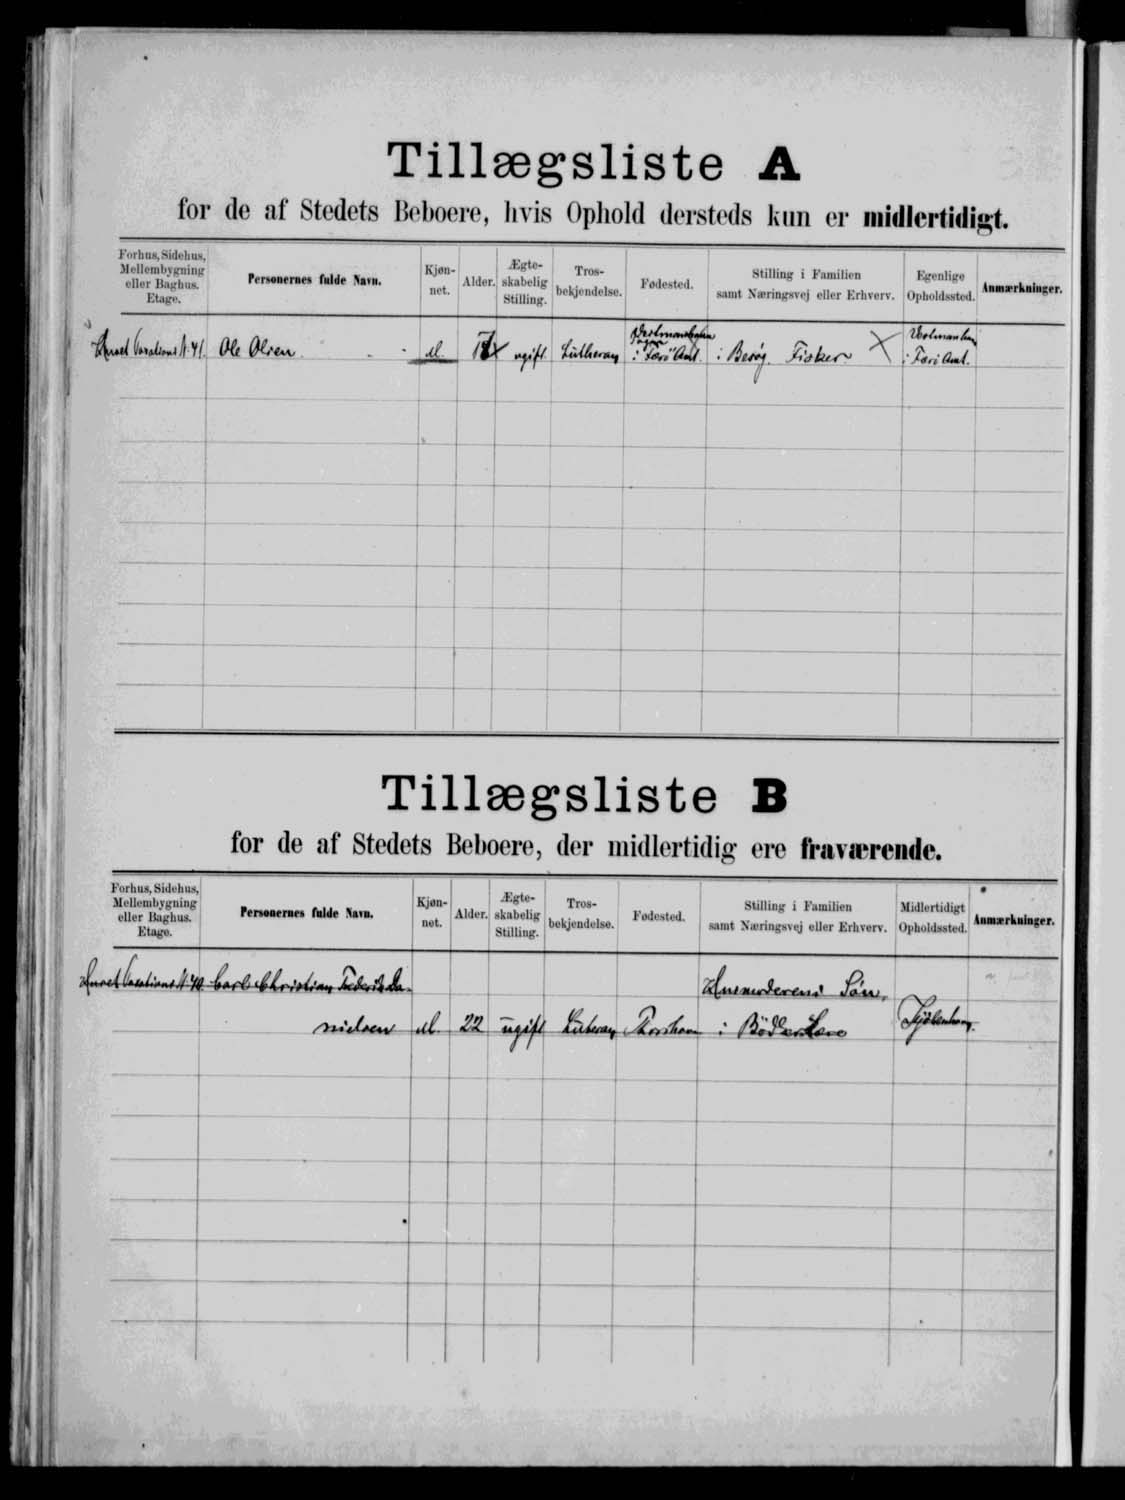 Tillægsliste A
for de af Stedets Beboere, hvis Ophold dersteds kun er midlertidigt.
Forhus, Sidehus, Mellembygning eller Baghus. Etage.
Personernes fulde Navn.
Kjøn-net.
Alder.
Ægte-skabelig Stilling.
Tros-bekjendelse.
Fødested.
Stilling i Familien samt Næringsvej eller Erhverv.
Egenlige Opholdssted.
Anmærkninger.
Huset Taxations N. 41. Ole Olsen M. ugift Lutheran i Færö Amt. i Besøg. Fisker i Færö Amt.
Tillægsliste B
for de af Stedets Beboere, der midlertidig ere fraværende.
Forhus, Sidehus, Mellembygning eller Baghus. Etage.
Personernes fulde Navn.
Kjøn-net.
Alder.
Ægte-skabelig Stilling.
Tros-bekjendelse.
Fødested.
Stilling i Familien samt Næringsvej eller Erhverv.
Midlertidigt Opholdssted.
Anmærkninger.
Huset Taxations N. 40. Carl Christian Frederik Da- Husmoderens Søn,
nielsen M. 22 ugift Lutheran Thorshavn i Bødkerlære Kjøbenhavn.